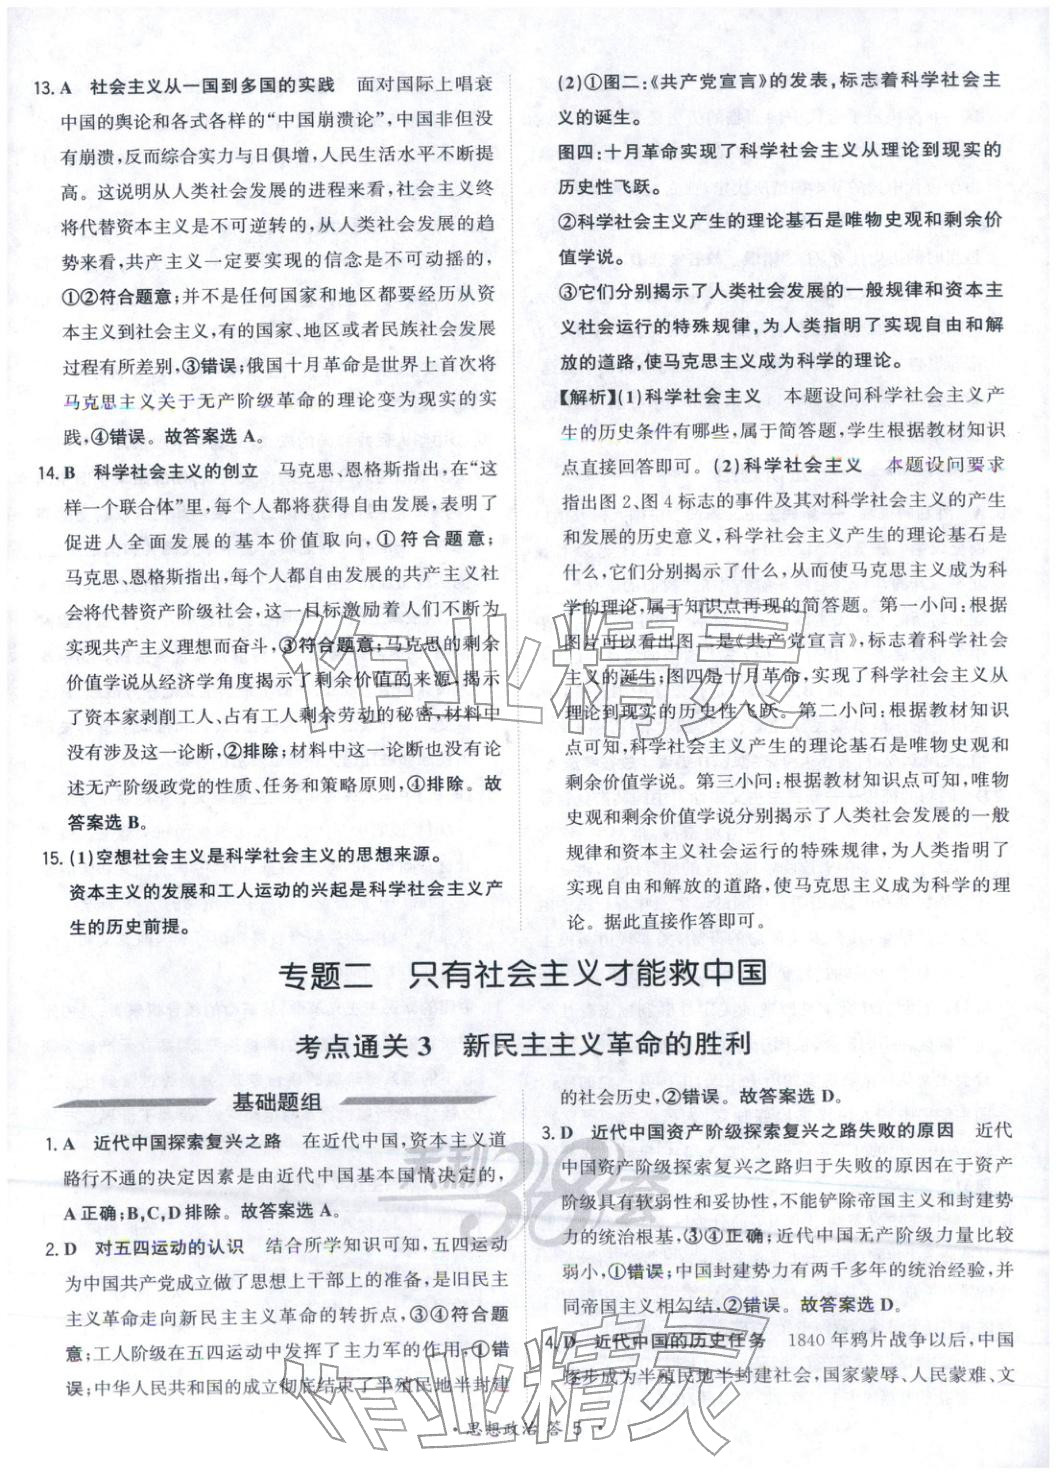 13. A 社会主义从一国到多国的实践 面对国际上唱衰
中国的舆论和各式各样的“中国崩溃论”,中国非但没
有崩溃,反而综合实力与日俱增,人民生活水平不断提
高。这说明从人类社会发展的进程来看,社会主义终
将代替资本主义是不可逆转的,从人类社会发展的趋
势来看,共产主义一定要实现的信念是不可动摇的,
①②符合题意;并不是任何国家和地区都要经历从资
本主义到社会主义,有的国家、地区或者民族社会发展
过程有所差别,③错误;俄国十月革命是世界上首次将
马克思主义关于无产阶级革命的理论变为现实的实
践,④错误。故答案选 A。
14. B 科学社会主义的创立 马克思、恩格斯指出,在“这
样一个联合体”里,每个人都将获得自由发展,表明了
促进人全面发展的基本价值取向,①符合题意;
马克思、恩格斯指出,每个人都自由发展的共产主义社
会将代替资产阶级社会,这一目标激励着人们不断为
实现共产主义理想而奋斗,③符合题意;马克思的剩余
价值学说从经济学角度揭示了剩余价值的来源,揭示
了资本家剥削工人、占有工人剩余劳动的秘密,材料中
没有涉及这一论断,②排除;材料中这一论断也没有论
述无产阶级政党的性质、任务和策略原则,④排除。故
答案选 B。
15. (1)空想社会主义是科学社会主义的思想来源。
资本主义的发展和工人运动的兴起是科学社会主义产
生的历史前提。
(2)①图二:《共产党宣言》的发表,标志着科学社会主
义的诞生。
图四:十月革命实现了科学社会主义从理论到现实的
历史性飞跃。
②科学社会主义产生的理论基石是唯物史观和剩余价
值学说。
③它们分别揭示了人类社会发展的一般规律和资本主
义社会运行的特殊规律,为人类指明了实现自由和解
放的道路,使马克思主义成为科学的理论。
【解析】(1)科学社会主义 本题设问科学社会主义产
生的历史条件有哪些,属于简答题,学生根据教材知识
点直接回答即可。(2)科学社会主义 本题设问要求
指出图 2、图 4 标志的事件及其对科学社会主义的产生
和发展的历史意义,科学社会主义产生的理论基石是
什么,它们分别揭示了什么,从而使马克思主义成为科
学的理论,属于知识点再现的简答题。第一小问:根据
图片可以看出图二是《共产党宣言》,标志着科学社会
主义的诞生;图四是十月革命,实现了科学社会主义从
理论到现实的历史性飞跃。第二小问:根据教材知识
点可知,科学社会主义产生的理论基石是唯物史观和
剩余价值学说。第三小问:根据教材知识点可知,唯物
史观和剩余价值学说分别揭示了人类社会发展的一般
规律和资本主义社会运行的特殊规律,为人类指明了
实现自由和解放的道路,使马克思主义成为科学的理
论。据此直接作答即可。
专题二 只有社会主义才能救中国
考点通关 3 新民主主义革命的胜利
基础题组
1. A 近代中国探索复兴之路 在近代中国,资本主义道
路行不通的决定因素是由近代中国基本国情决定的,
A 正确;B、C、D 排除。故答案选 A。
2. D 对五四运动的认识 结合所学知识可知,五四运动
为中国共产党成立做了思想上干部上的准备,是旧民主
主义革命走向新民主主义革命的转折点,③④符合题
意;工人阶级在五四运动中发挥了主力军的作用,①错
误;中华人民共和国的成立彻底结束了半殖民地半封建
的社会历史,②错误。故答案选 D。
3. D 近代中国资产阶级探索复兴之路失败的原因 近代
中国资产阶级探索复兴之路归于失败的原因在于资产
阶级具有软弱性和妥协性,不能铲除帝国主义和封建势
力的统治根基,③④正确;近代中国无产阶级力量比较
弱小,①错误;中国封建势力有两千多年的统治经验,并
同帝国主义相勾结,②错误。故答案选 D。
4. D 近代中国的历史任务 1840 年鸦片战争以后,中国
逐步成为半殖民地半封建社会,国家蒙辱、人民蒙难、文
· 思想政治 答 5 ·
作业精灵
天利38套
作业精灵